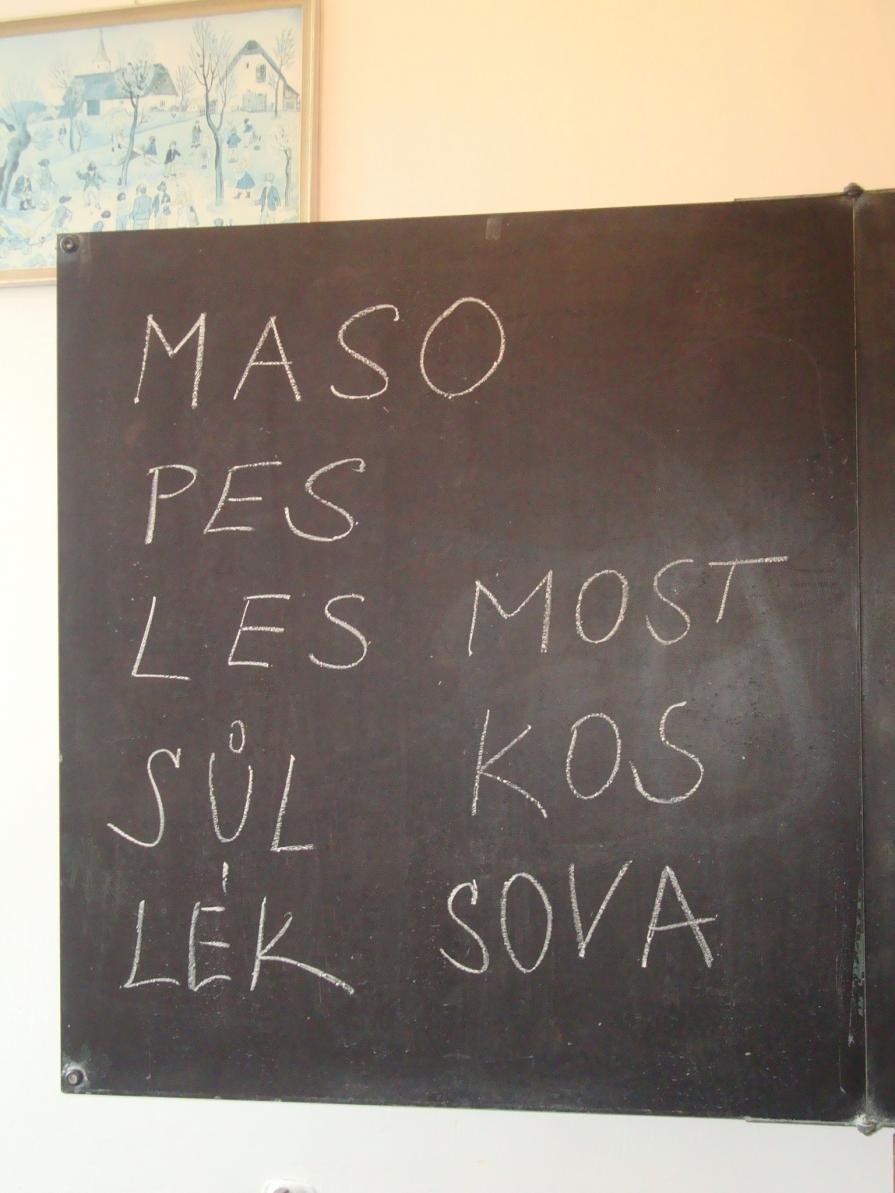 MASO
PES
LES MOST
SŮL KOS
LÉK SOVA